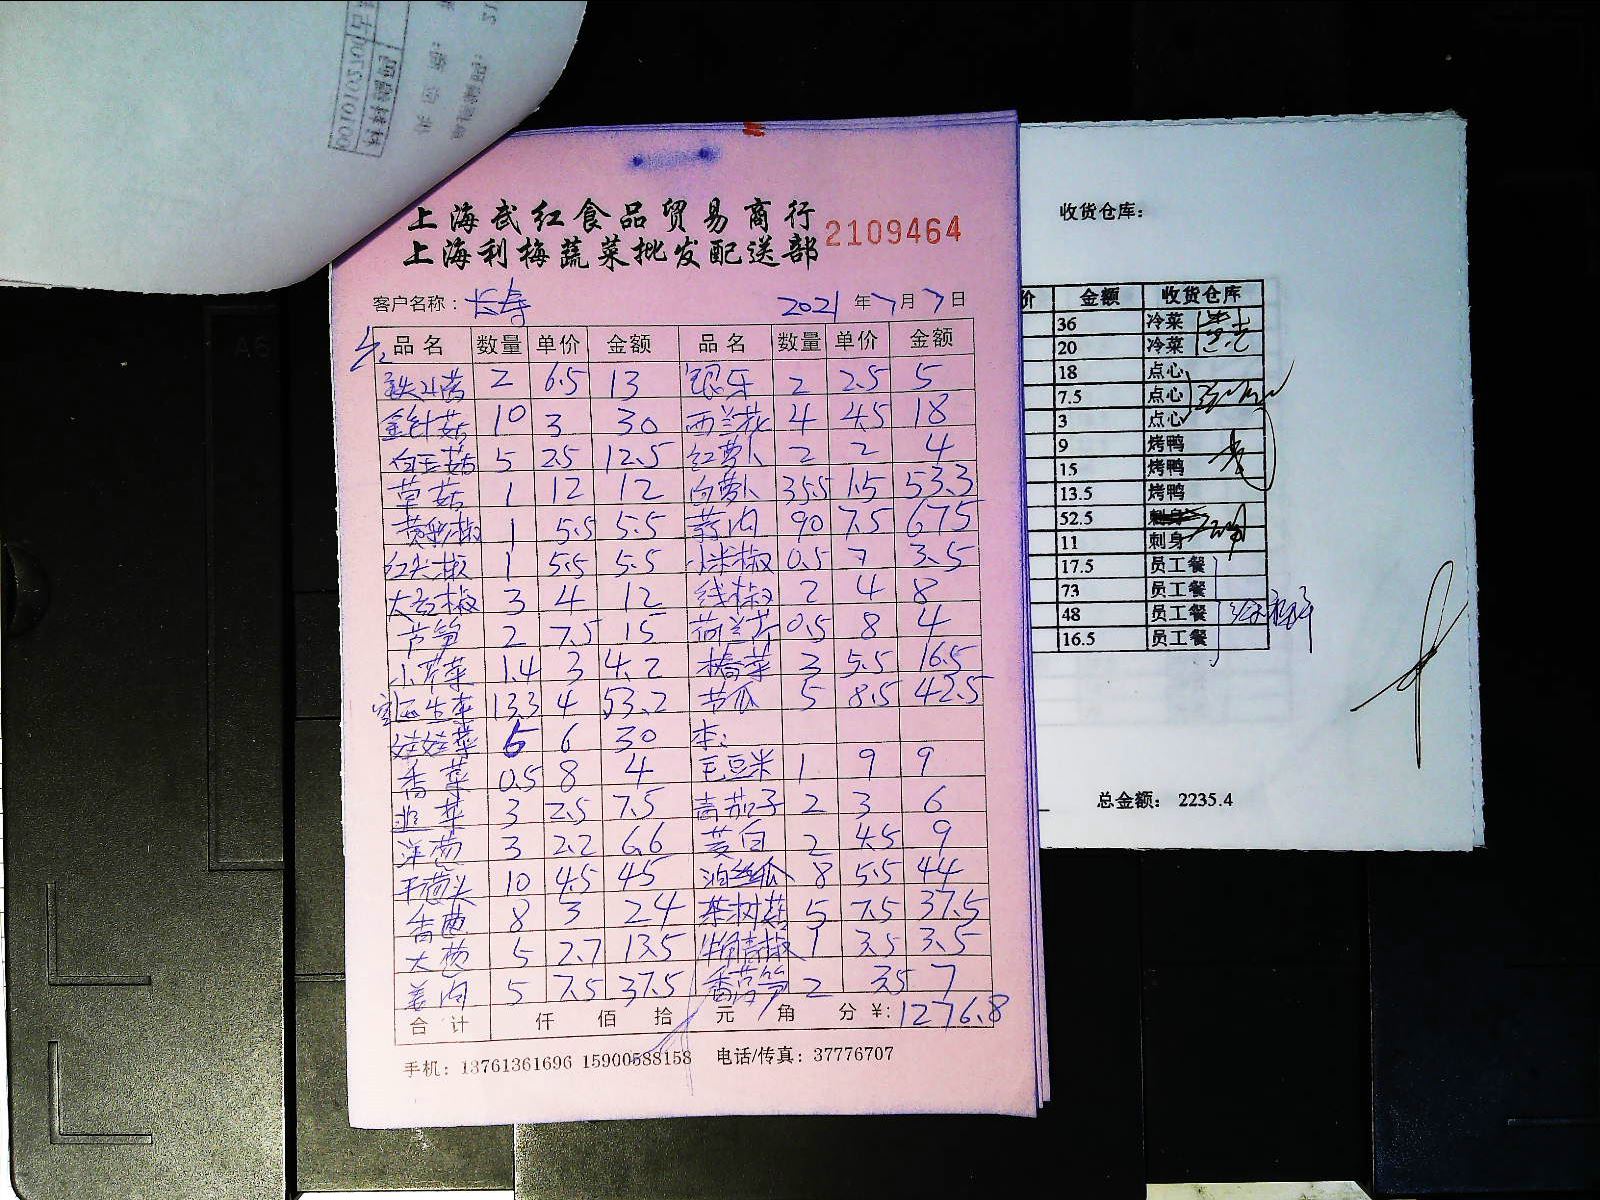 上海武红食品贸易商行
上海利梅蔬菜批发配送部
2109464
客户名称：长寿 2021年7月7日
品名 数量 单价 金额 品名 数量 单价 金额
铁山药 2 6.5 13 银牙 2 2.5 5
金针菇 10 3 30 西兰花 4 4.5 18
白玉菇 5 2.5 12.5 红萝卜 2 2 4
草菇 1 12 12 白萝卜 35.5 1.5 53.3
黄彩椒 1 5.5 5.5 蒜肉 90 7.5 675
红尖椒 1 5.5 5.5 小米椒 0.5 7 3.5
大红椒 3 4 12 线椒 2 4 8
芦笋 2 7.5 15 荷兰芹 0.5 8 4
小芹菜 1.4 3 4.2 3 5.5 16.5
西生菜 13.3 4 53.2 苦瓜 5 8.5 42.5
娃娃菜 5 6 30 本：
香菜 0.5 8 4 毛豆米 1 9 9
韭菜 3 2.5 7.5 青茄子 2 3 6
洋葱 3 2.2 6.6 茭白 2 4.5 9
干葱头 10 4.5 45 油丝瓜 8 5.5 44
香茜 8 3 24 茶树菇 5 7.5 37.5
大葱 5 2.7 13.5 牛角青椒 1 3.5 3.5
姜肉 5 7.5 37.5 香莴笋 2 3.5 7
合计 仟 佰 拾 元 角 分 ¥: 1276.8
手机：13761361696 15900588158 电话/传真：37776707
收货仓库：
价 金额 收货仓库
36 冷菜
20 冷菜
18 点心
7.5 点心
3 点心
9 烤鸭
15 烤鸭
13.5 烤鸭
52.5 刺身
11 刺身
17.5 员工餐
73 员工餐
48 员工餐
16.5 员工餐
总金额： 2235.4